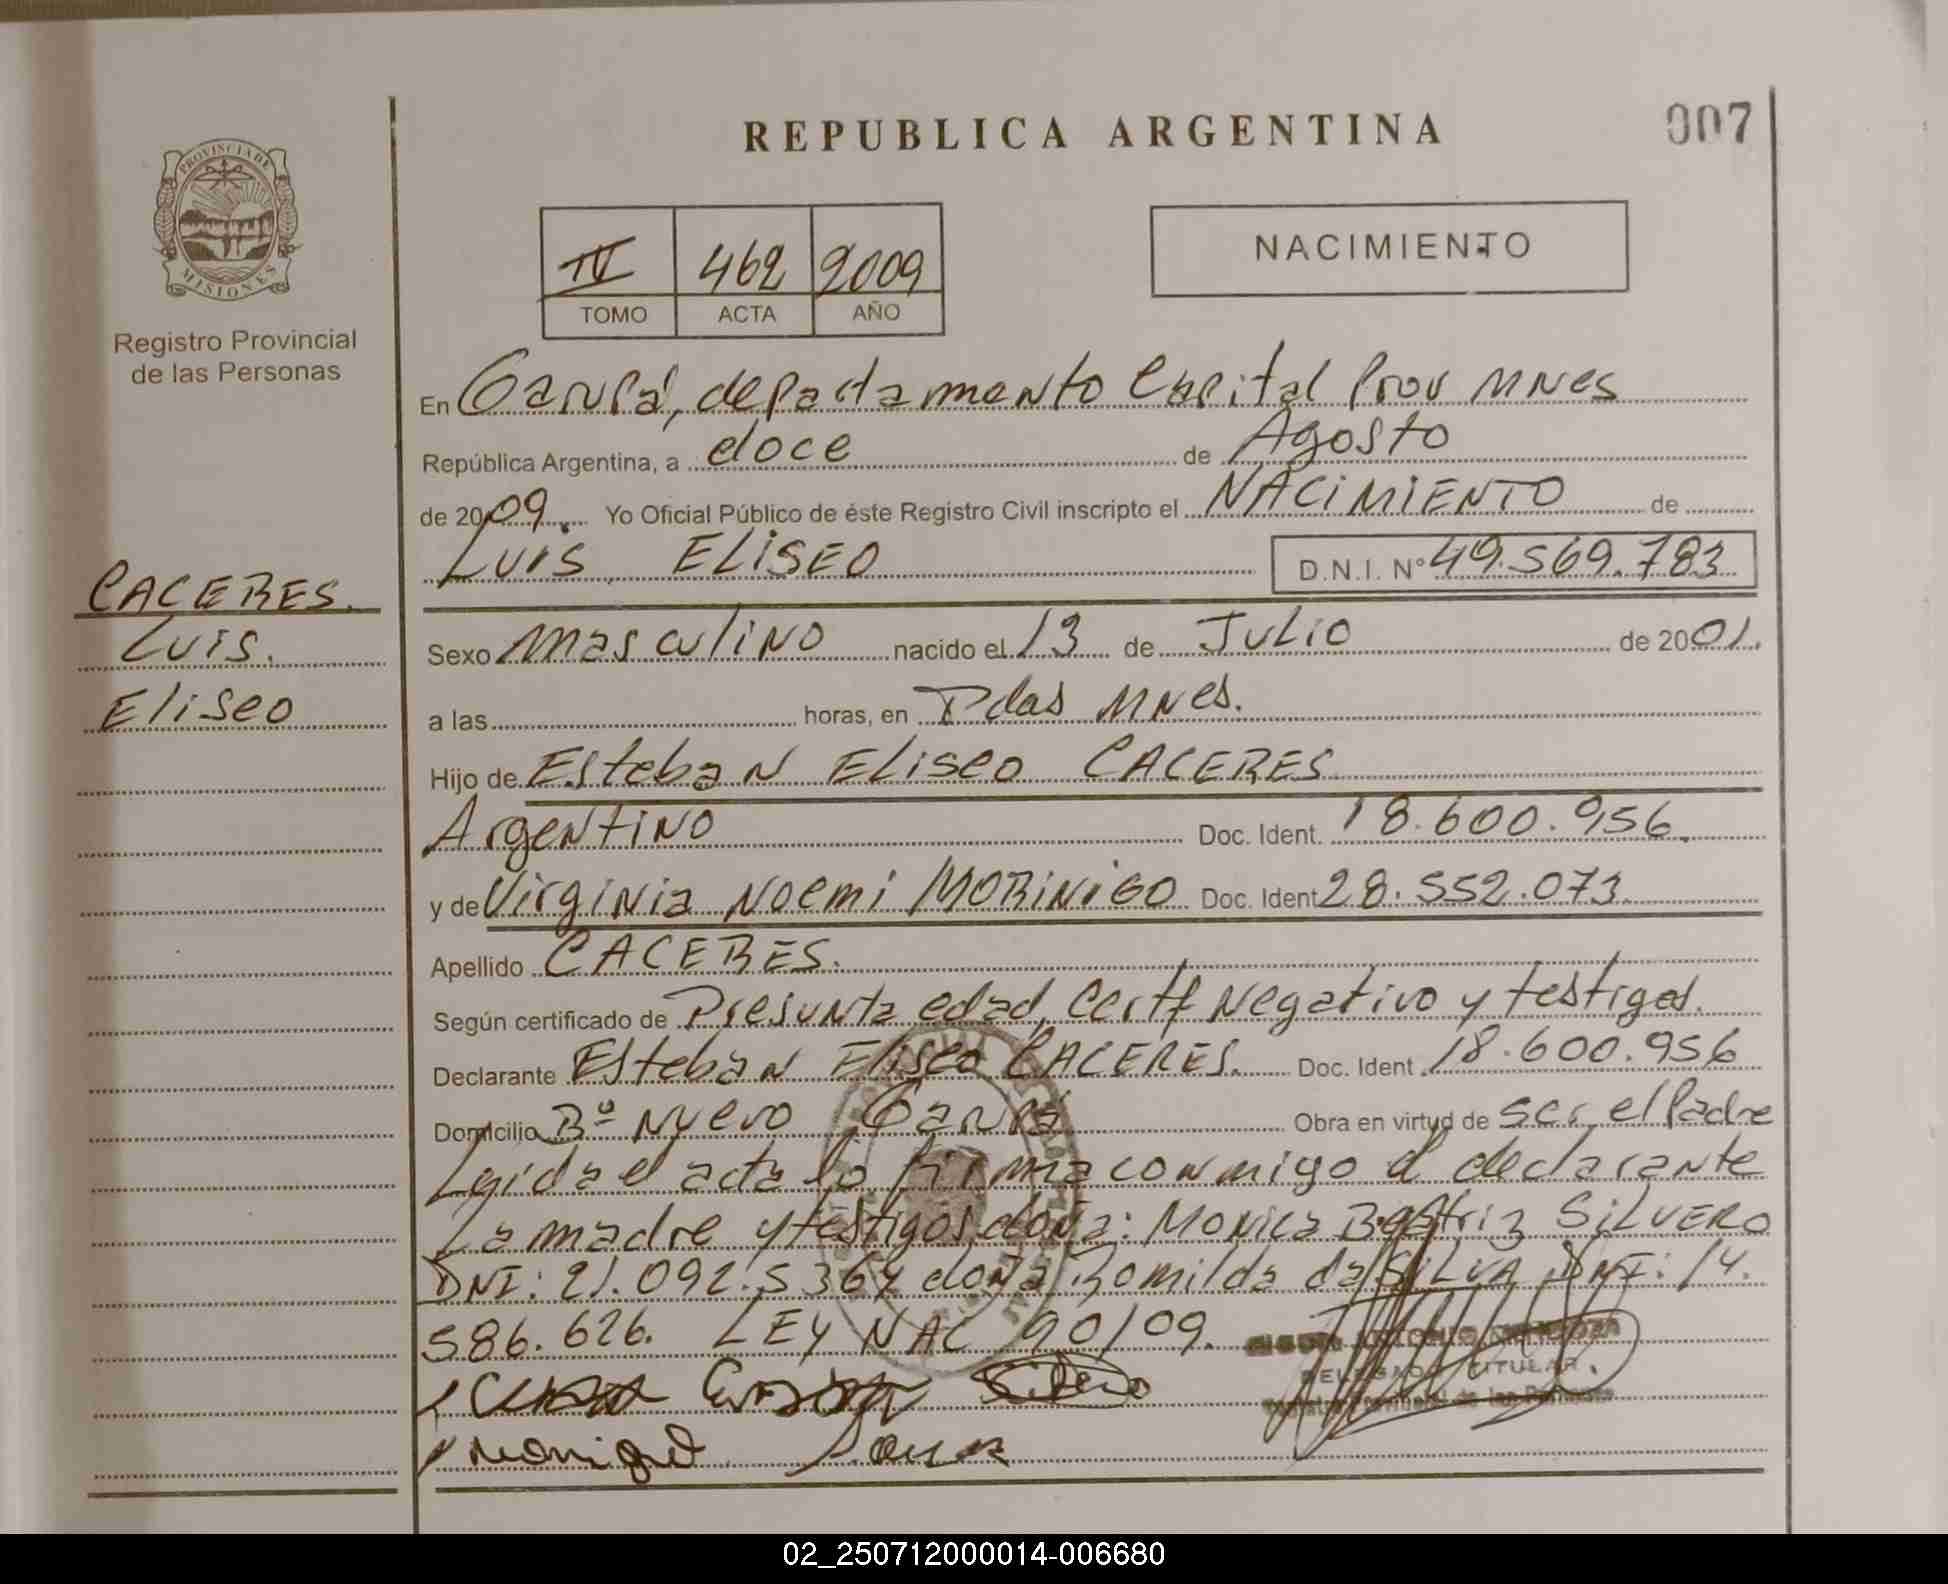 REPUBLICA ARGENTINA
007
PROVINCIA DE
MISIONES
Registro Provincial
de las Personas
IV 462 2009
TOMO ACTA AÑO
NACIMIENTO
En Garupá, departamento Capital Prov MNes
República Argentina, a doce de Agosto
de 2009. Yo Oficial Público de éste Registro Civil inscripto el NACIMIENTO de
LUIS ELISEO D.N.I. Nº 49.569.783
CACERES.
Luis.
Eliseo
Sexo Masculino nacido el 13 de JULIO de 2001.
a las horas, en Pdas MNes.
Hijo de Esteban Eliseo CACERES
Argentino Doc. Ident. 18.600.956
y de Virginia Noemi MORINIGO Doc. Ident 28.552.073
Apellido CACERES.
Según certificado de Presunta edad, Certf Negativo y testigos.
Declarante Esteban Eliseo CACERES. Doc. Ident. 18.600.956
Domicilio Bº Nuevo Garupá Obra en virtud de ser el Padre
Leida el acta lo firma conmigo el declarante
La madre y testigos doña: Monica Beatriz SILVERO
DNI: 21.092.536 y doña Romilda da SILVA DNI: 14.
586.626. LEY NAC 90/09.
DELEGADO TITULAR
Registro Provincial de las Personas
02_250712000014-006680